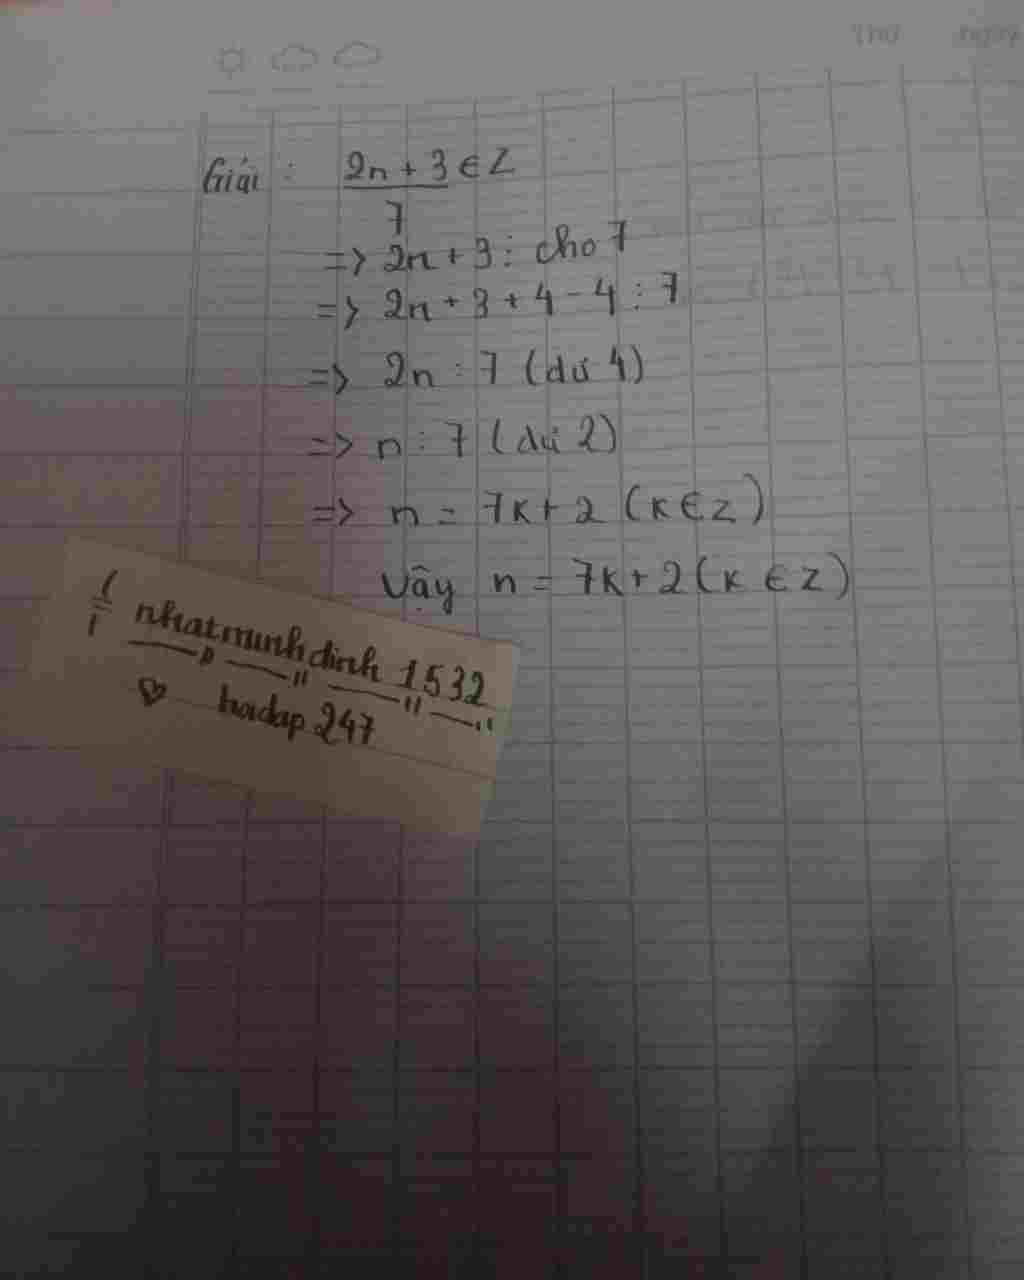 Thứ ngày
Giải : 2n + 3 ∈ Z
7
=> 2n + 3 ⋮ cho 7
=> 2n + 3 + 4 - 4 ⋮ 7
=> 2n : 7 (dư 4)
=> n : 7 (dư 2)
=> n = 7k + 2 (k ∈ Z)
Vậy n = 7k + 2 (k ∈ Z)
nhatminhdinh 1532
hoidap 247